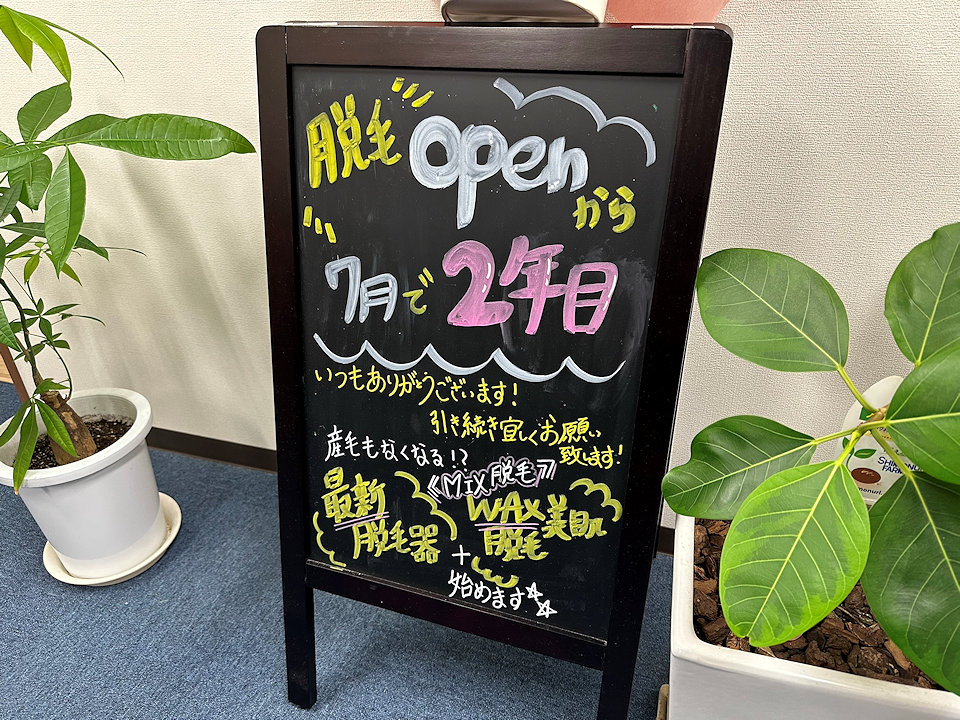 脱毛 open から
7月で 2年目
いつもありがとうございます!
引き続き宜しくお願い
致します!
産毛もなくなる!?
《MIX脱毛》
最新
脱毛器
+
WAX 美肌
脱毛
始めます☆☆